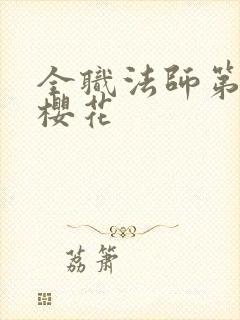 全職法師第
櫻花
荔簫